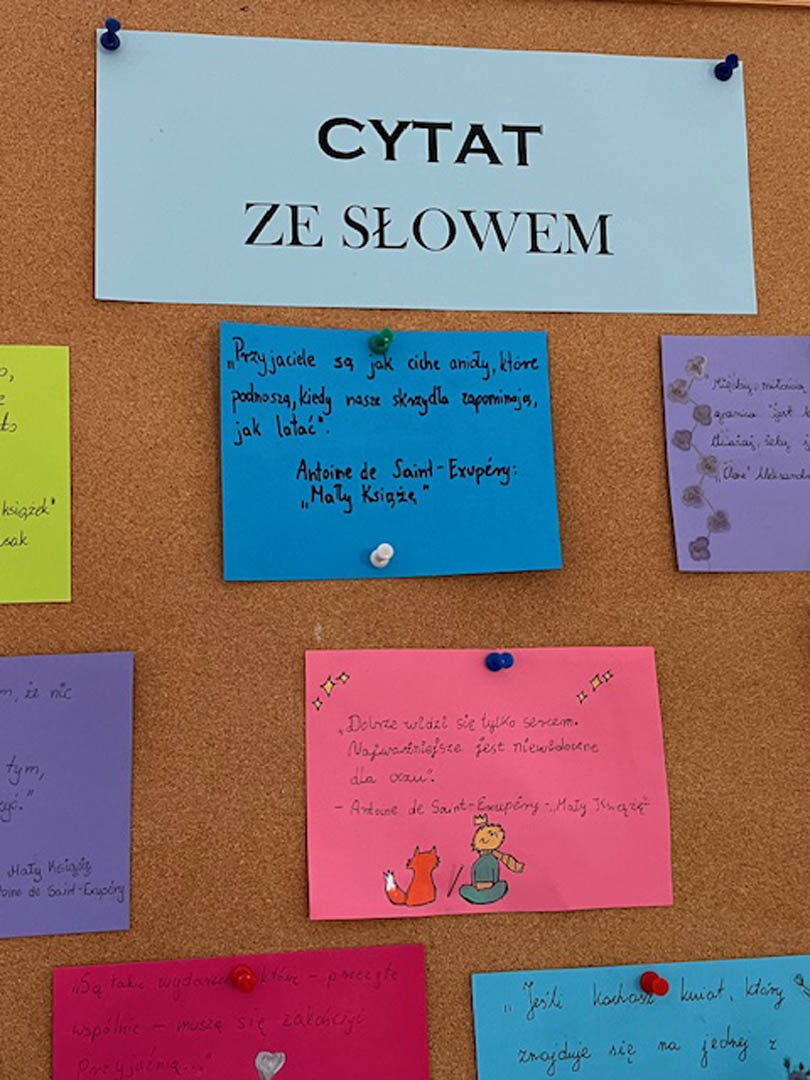 CYTAT
ZE SŁOWEM
„Przyjaciele są jak ciche anioły, które
podnoszą, kiedy nasze skrzydła zapominają,
jak latać”.
Antoine de Saint-Exupéry:
„Mały Książę”
książek”
sak
"Między miłością
granica jest
Uważaj, żeby
„Clone” Aleksandra
m, że nic
tym,
Mały Książę
toine de Saint-Exupéry
„Dobrze widzi się tylko sercem.
Najważniejsze jest niewidoczne
dla oczu”.
- Antoine de Saint-Exupéry - „Mały Książę”
„Są takie które – przeżyte
wspólnie – muszą się zakończyć
Przyjaźnią..."
„Jeśli kochasz kwiat, który
znajduje się na jednej z